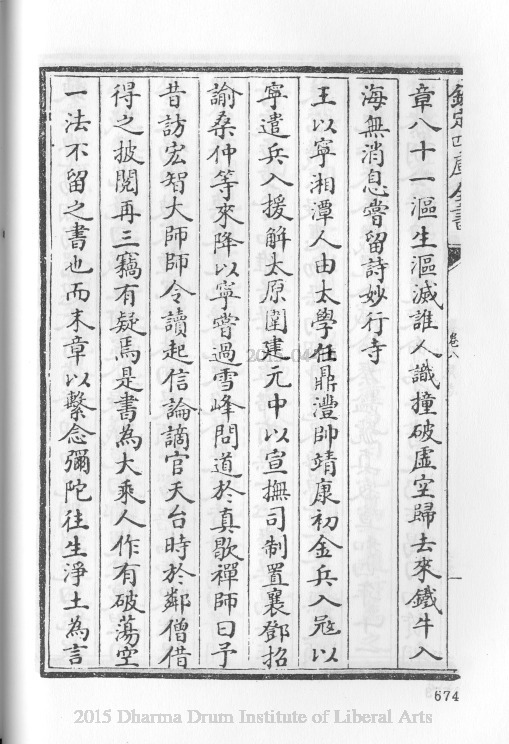 欽定四庫全書
卷八
章八十一漚生漚滅誰人識撞破虛空歸去來鐵牛入
海無消息嘗留詩妙行寺
王以寧湘潭人由太學仕鼎灃帥靖康初金兵入寇以
寧遣兵入援解太原圍建元中以宣撫司制置襄鄧招
諭桑仲等來降以寧嘗過雪峰問道於真歇禪師曰予
昔訪宏智大師師令讀起信論謫官天台時於鄰僧借
得之披閱再三竊有疑焉是書為大乘人作有破蕩空
一法不留之書也而末章以繫念彌陀往生淨土為言
674
2015 Dharma Drum Institute of Liberal Arts